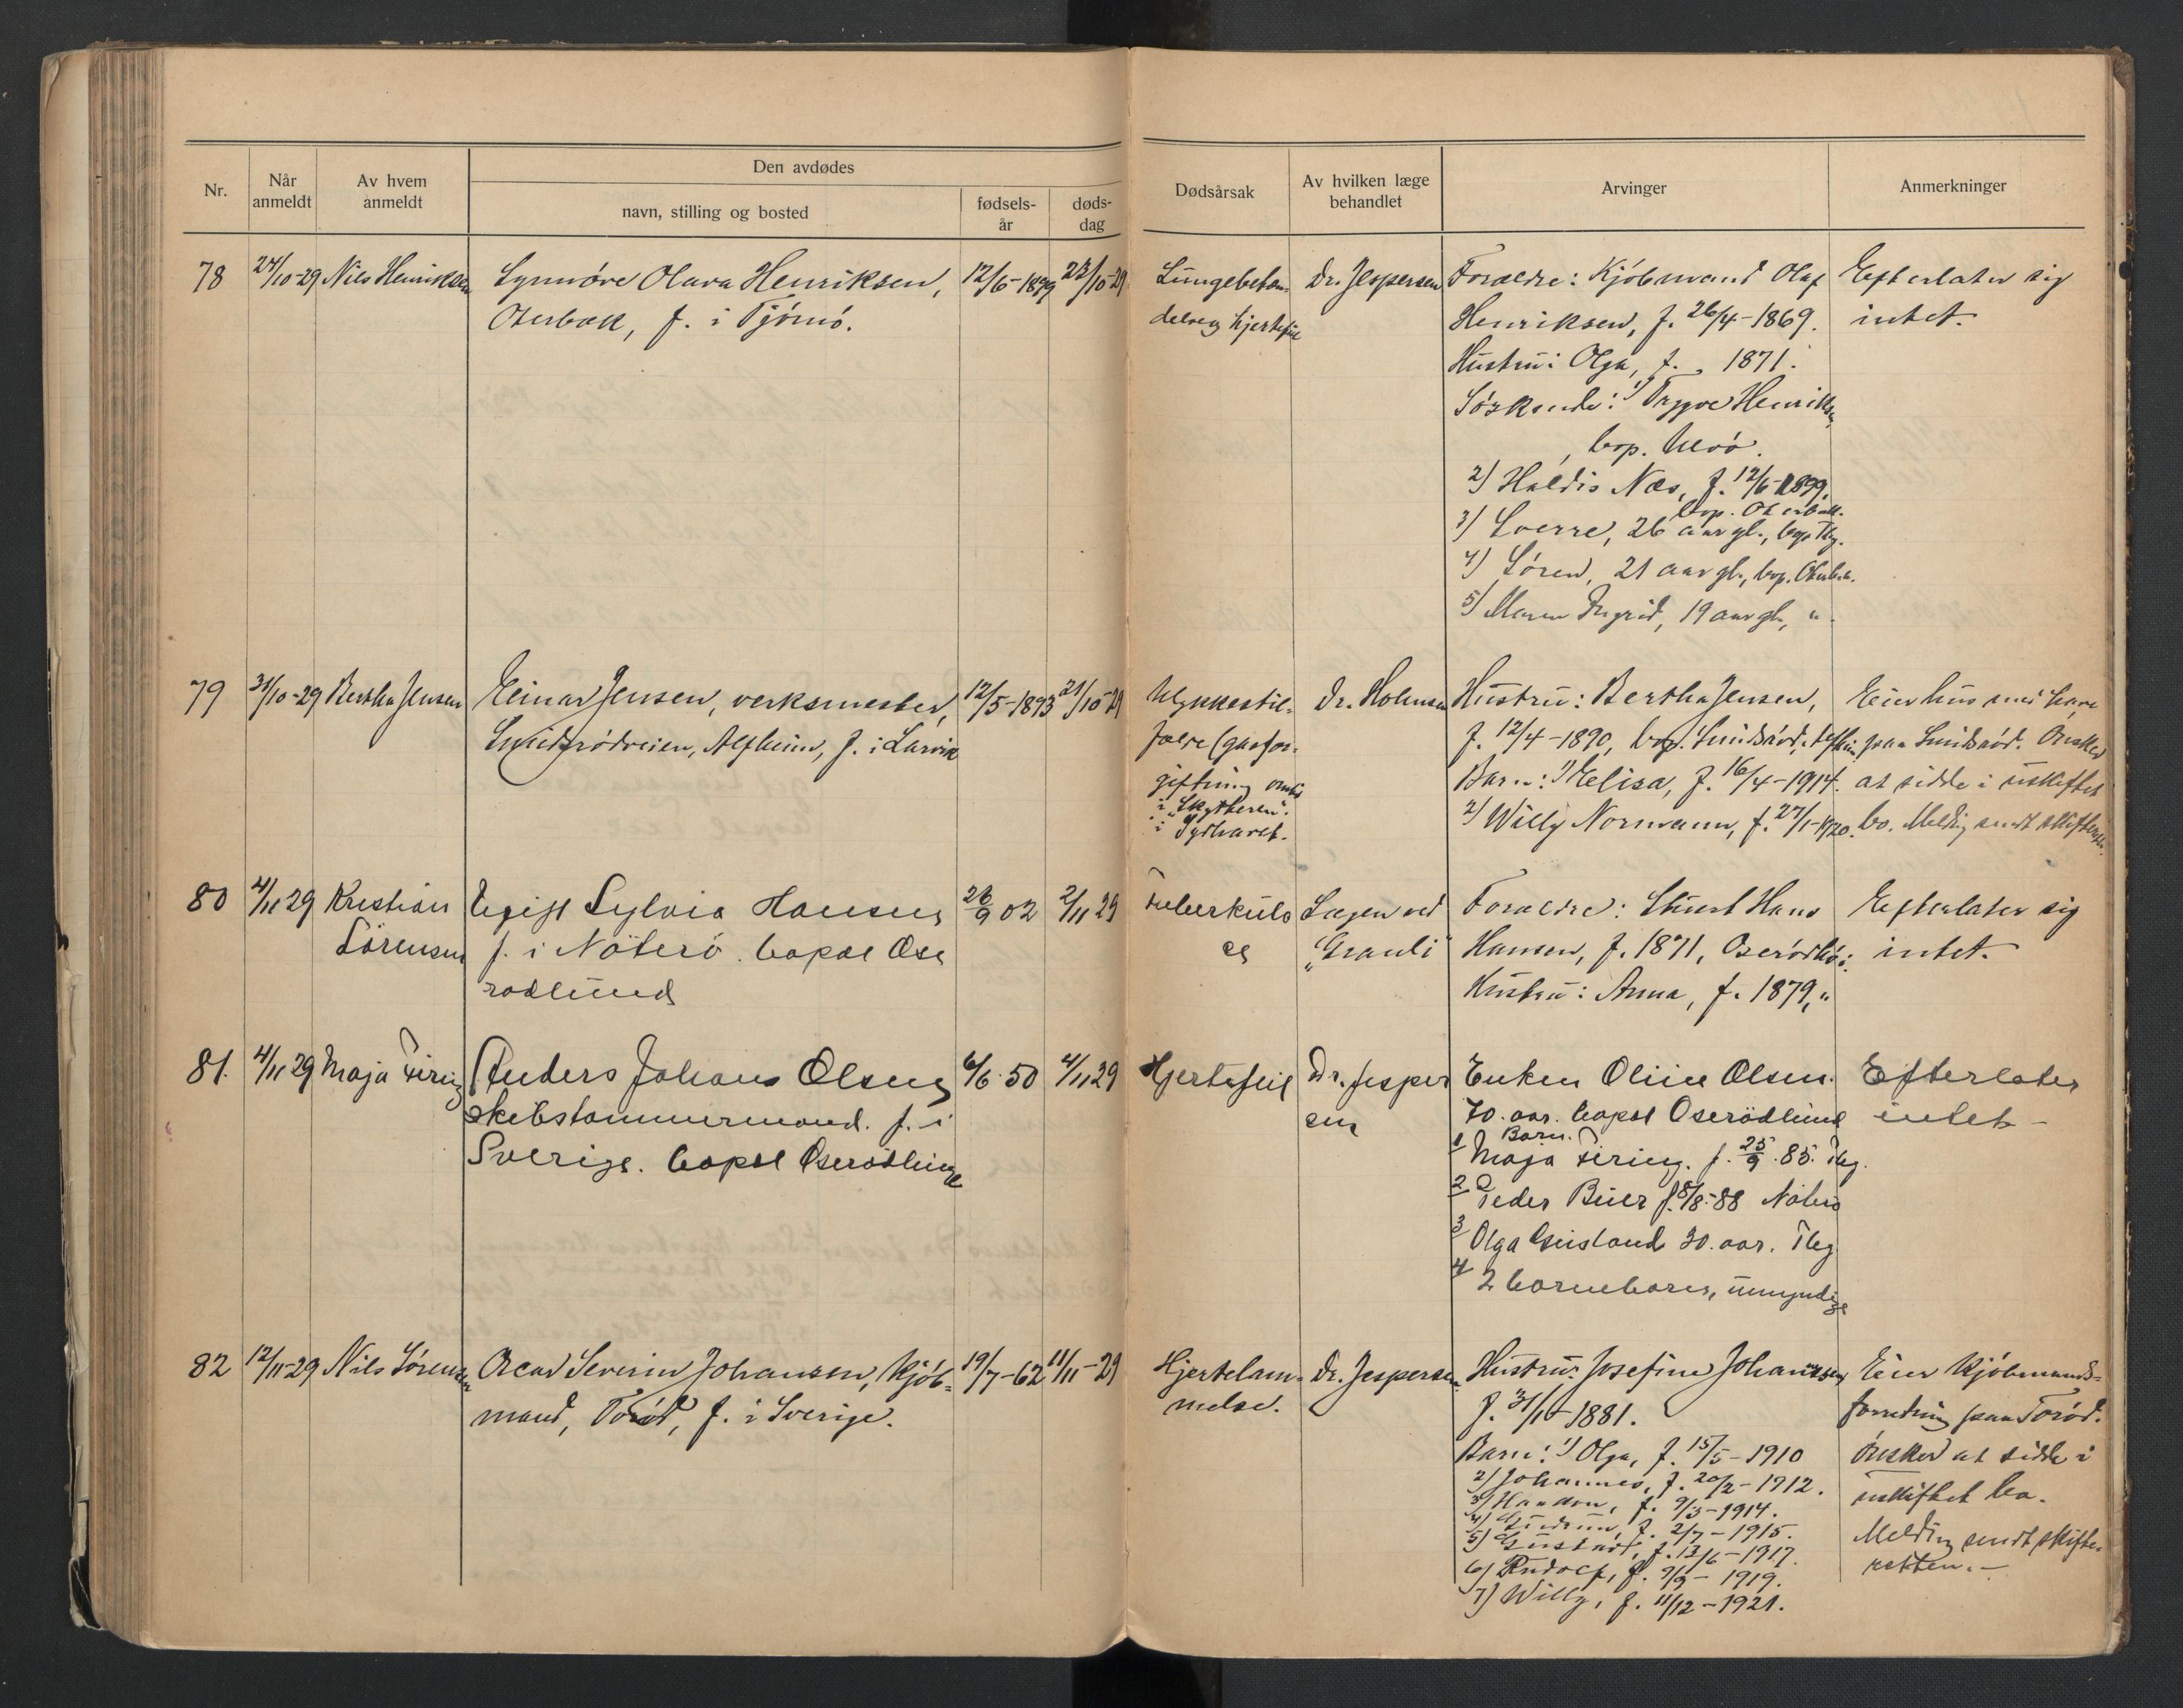 Nr.
Når anmeldt
Av hvem anmeldt
Den avdødes
navn, stilling og bosted
fødsels-år
døds-dag
Dødsårsak
Av hvilken læge behandlet
Arvinger
Anmerkninger
78 24/10-29 Nils Henriksen Synnöve Olava Henriksen, 12/6-1899 22/10-29
Oterbæk, f. i Tjömö.
Lungebeten-
delse, hjertefeil
Dr. Jespersen
Foraeldre: Kjöbmand Olaf
Henriksen, f. 26/4-1869.
Hustru: Olga, f. " 1871.
Söskende: 1) Trygve Henriksen,
bop.
2) Haldis Næs, f. 12/6-1899,
bop. Oterbæk.
3) Sverre, 26 aar gl., bop. Tbg.
4) Sören, 21 aar gl., bop. Oterbæk.
5) Maren Ingrid, 19 aar gl., "
Efterlater sig
intet.
79 31/10-29 Bertha Jensen Einar Jensen, verksmester, 12/5-1893 21/10-29
Smidsrödveien, Alfheim, f. i Larvik
Ulykkestil-
fælde (gasfor-
giftning ombord
i "Skytteren".
i Sydhavet.
Dr. Holmsen
Hustru: Bertha Jensen,
f. 12/4-1890, bop. Smidsröd, Alfheim
Barn: 1) Elisa, f. 16/4-1914.
2) Willy Normann, f. 27/1-1920.
Eier hus med have
paa Smidsröd. Önsker
at sidde i uskiftet
bo. Melding sendt skifteretten.
80 4/11 29 Kristian
Sörensen
Sylvia Hansen 26/9 02 2/11 29
f. i Nöterö. bopæl Ose
rödlund
Tuberkulo
se
Lægen ved
"Granli"
Foraeldre: Stuert Hans
Hansen, f. 1871, Oserödkö:
Hustru: Anna, f. 1879, "
Efterlater sig
intet.
81. 4/11 29 Maja Fering Anders Johans Olsen 6/6 50 4/11 29
skibstömmermand. f. i
Sverige. bopæl Oserödlund
Hjertefeil
Dr. Jesper
sen
Enken Oline Olsen.
70. aar. bopæl Oserödlund
Barn.
1 Maja Fering. f. 25/9. 85. Tbg.
2 Peder Buer f. 5/8-88 Nöterö
3 Olga 30. aar. Tbg
4 2 barnebarn, umyndige
Efterlater
intet -
82 12/11-29 Nils Sörensen Oscar Severin Johansen, kjöb- 19/7-62 11/11-29
mand, Toröd, f. i Sverige.
Hjertelam-
melse.
Dr. Jespersen.
Hustru: Josefine Johanssen,
f. 31/10-1881.
Barn: 1) Olga, f. 15/5-1910
2) Johannes, f. 20/2-1912.
3) Haakon, f. 9/3-1914.
4) Gudrun, f. 2/7-1915.
5) Gustav, f. 13/6-1917.
6) Rudolf, f. 9/9-1919.
7) Willy, f. 11/12-1921.
Eier kjöbmands-
forretning paa Toröd.
Önsker at sidde i
uskiftet bo.
Melding sendt skifte-
retten. -